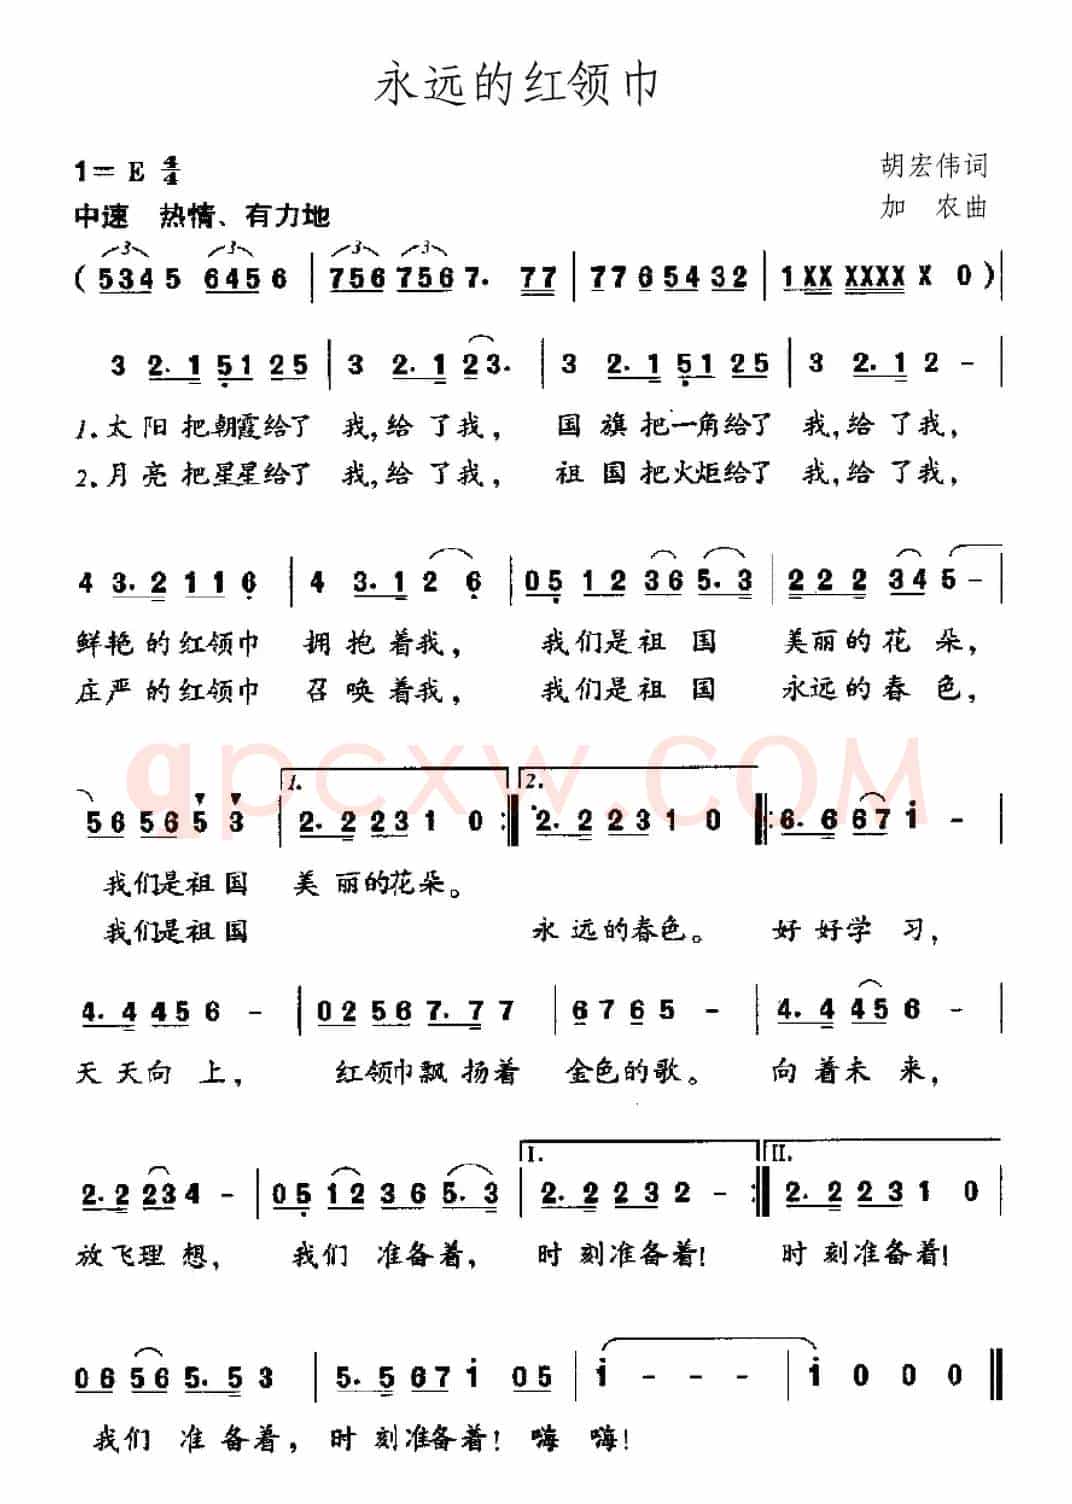 永远的红领巾
1= E 4/4
胡宏伟词
中速 热情、有力地
加 农曲
( 5345 6456 | 756 7567. 77 | 77 65432 | 1XX XXXX X 0 ) |
3 2. 1 51 25 | 3 2. 1 23. | 3 2. 1 51 25 | 3 2. 1 2 - |
1. 太 阳 把 朝霞给了 我, 给 了 我, 国 旗 把 一角给了 我, 给 了 我,
2. 月 亮 把 星星给了 我, 给 了 我, 祖 国 把 火炬给了 我, 给 了 我,
4 3. 2 1 1 6 | 4 3. 1 2 6 | 05 12 36 5. 3 | 22 2 34 5 - |
鲜艳 的 红领巾 拥 抱 着我, 我们是祖 国 美丽的 花 朵,
庄严 的 红领巾 召 唤 着我, 我们是祖 国 永远的 春 色,
56 56 5 3 | 1. 2. 2 2 3 1 0 :| 2. 2. 2 2 3 1 0 |: 6. 6 67 i - |
我们是祖 国 美 丽的花朵。
我们是祖 国 永 远的春色。 好 好学 习,
4. 4 45 6 - | 02 56 7. 7 7 | 6 7 6 5 - | 4. 4 45 6 - |
天 天向 上, 红领巾飘 扬着 金色的歌。 向 着未 来,
2. 2 23 4 - | 05 12 36 5. 3 | I. 2. 2 2 3 2 - :| II. 2. 2 2 3 1 0
放飞理 想, 我们 准备着, 时 刻准备着! 时 刻准备着!
06 56 5. 5 3 | 5. 5 67 i 05 | i - - - | i 0 0 0 ‖
我们 准 备着, 时 刻准备着! 嗨 嗨!
qpcxw.COM